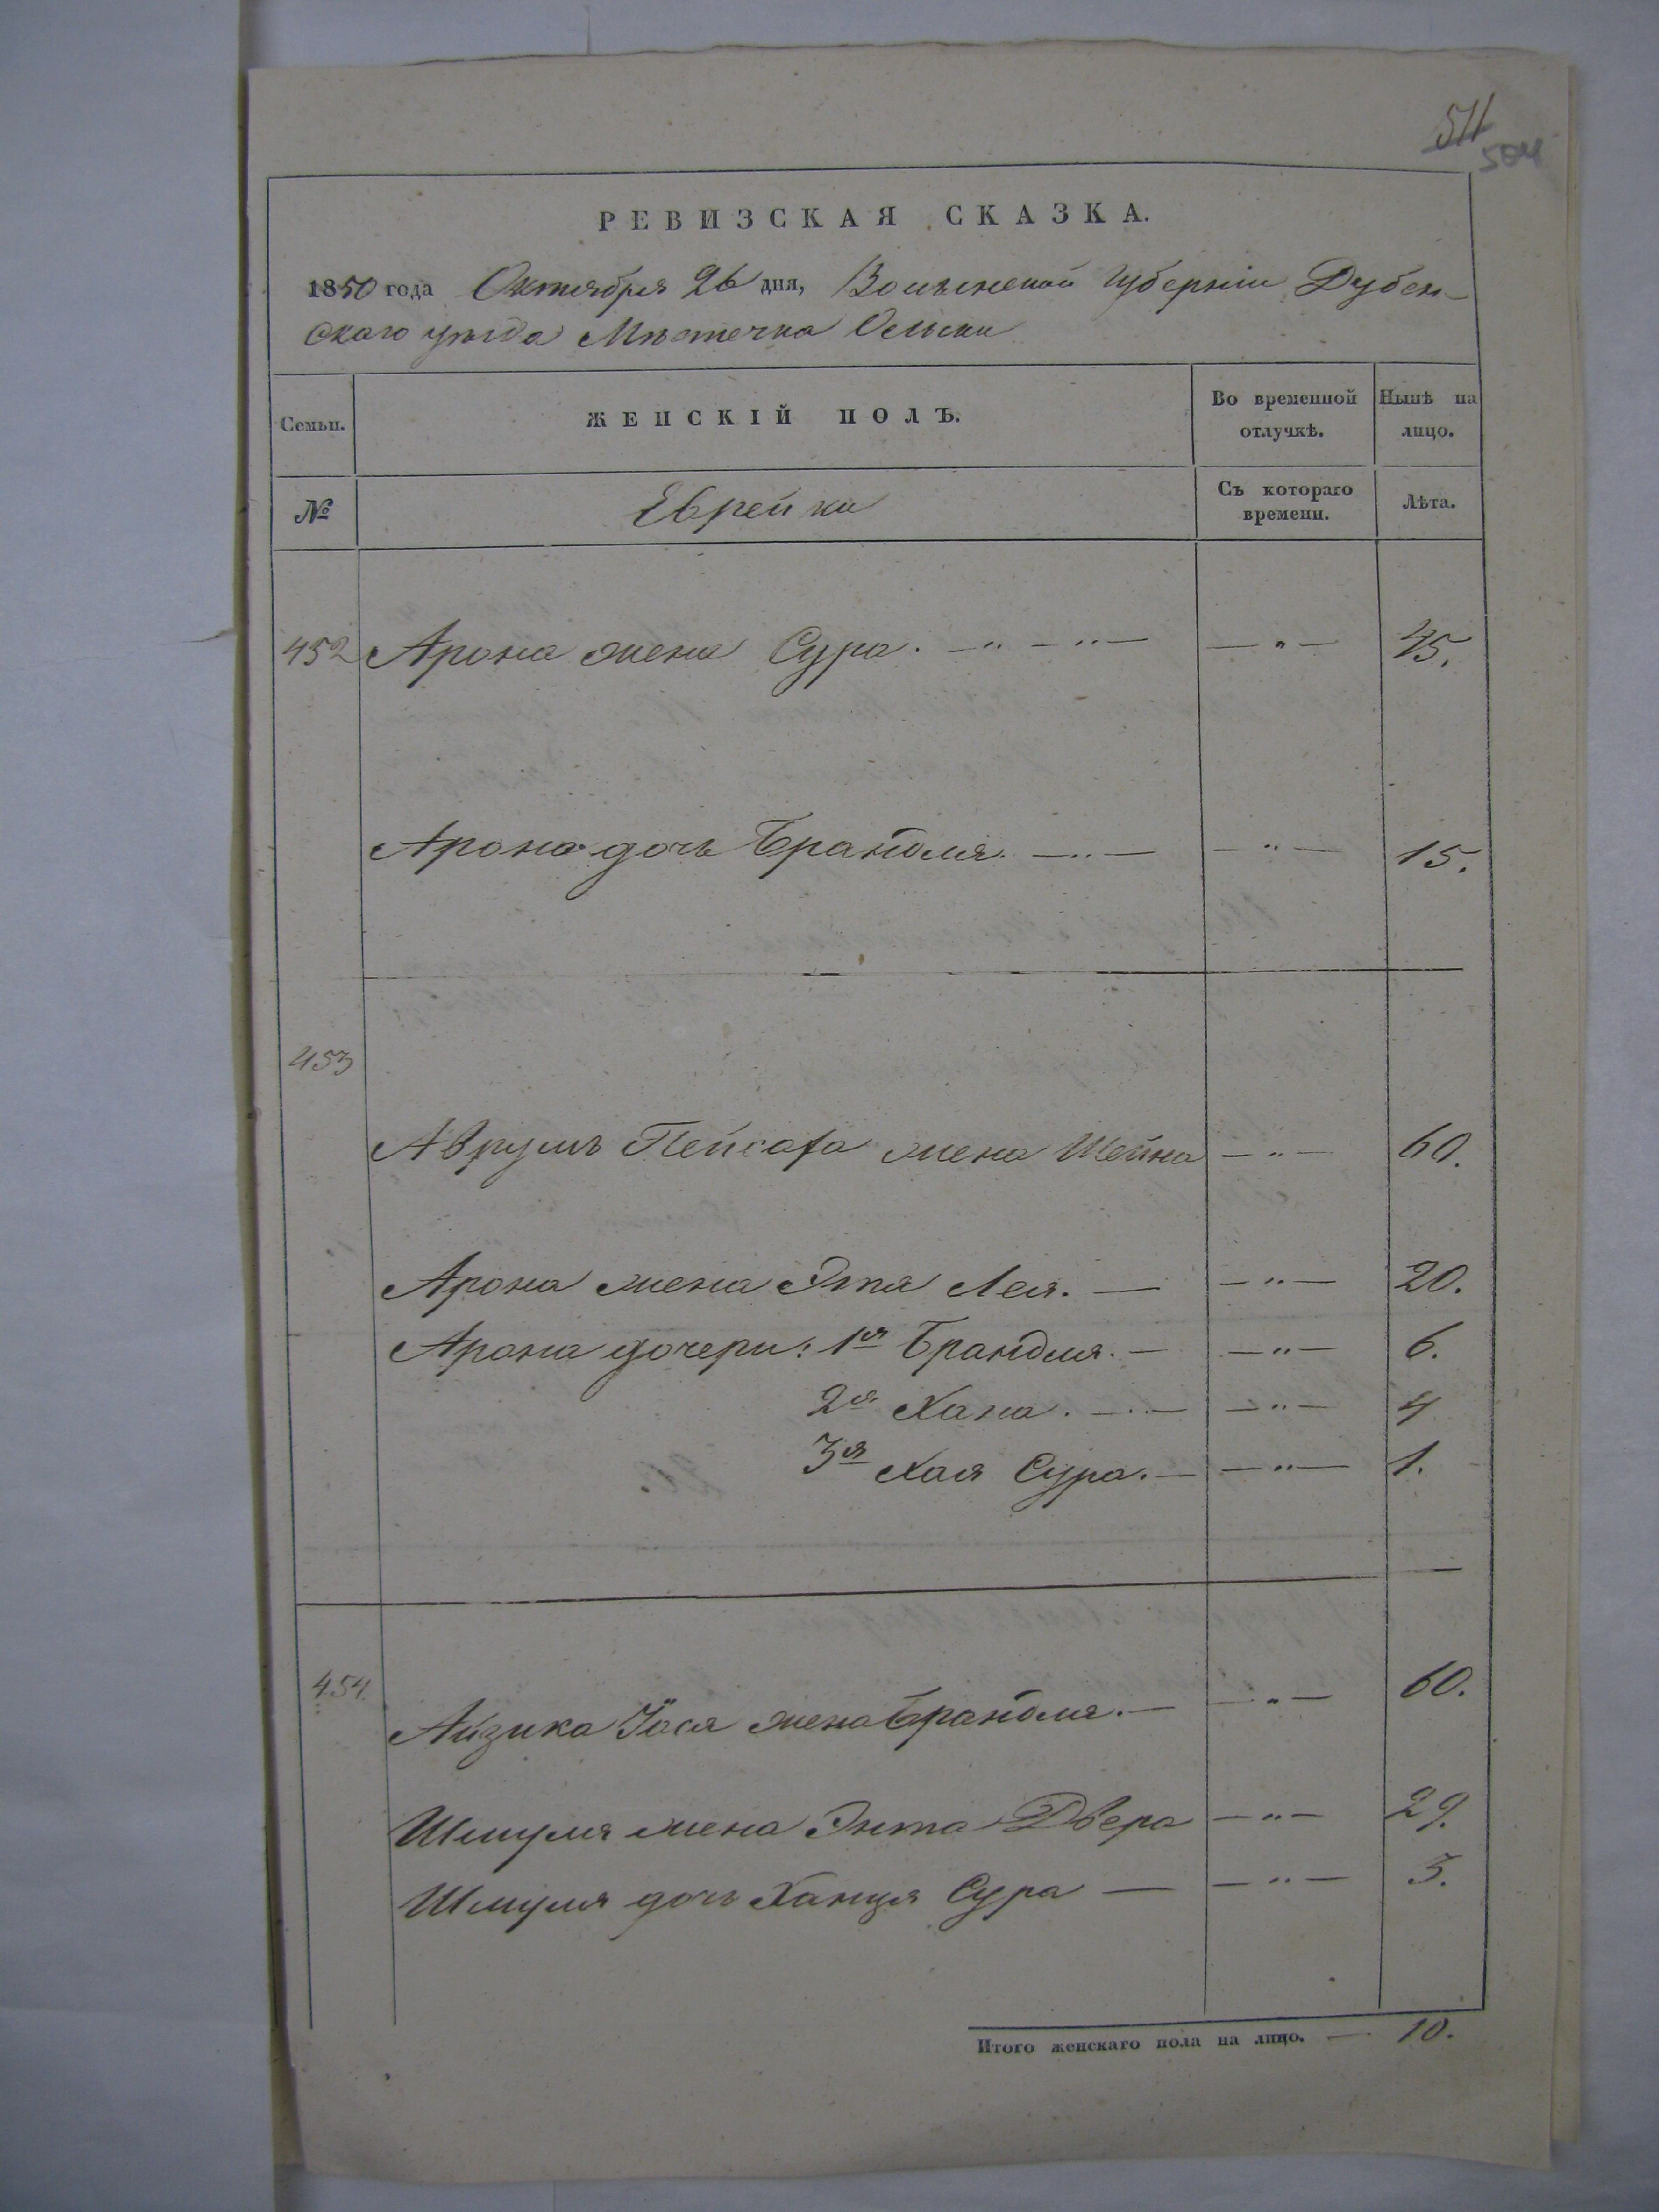 511
504
РЕВИЗСКАЯ СКАЗКА.
1850 года Октября 26 дня, Волынской Губерніи Дубен-
скаго уѣзда Мѣстечка
Семьи. ЖЕНСКІЙ ПОЛЪ. Во временной отлучкѣ. Нынѣ на лицо.
№ Еврейки Съ котораго времени. Лѣта.
452 Арона жена Сура. — " — " — — " — 45.
Арона дочь Брандля. — " — — " — 15.
453
Аврумъ Пейсаха жена Шейна — " — 60.
Арона жена Этя Лея. — — " — 20.
Арона дочери: 1я Брандля. — — " — 6.
2я Хана. — " — — " — 4
3я Хая Сура. — — " — 1.
454. Айзика Іося жена Брандля. — — " — 60.
Шмуля жена Энта Двера — " — 29.
Шмуля дочь Ханця Сура — — " — 3.
Итого женскаго пола на лицо. — 10.